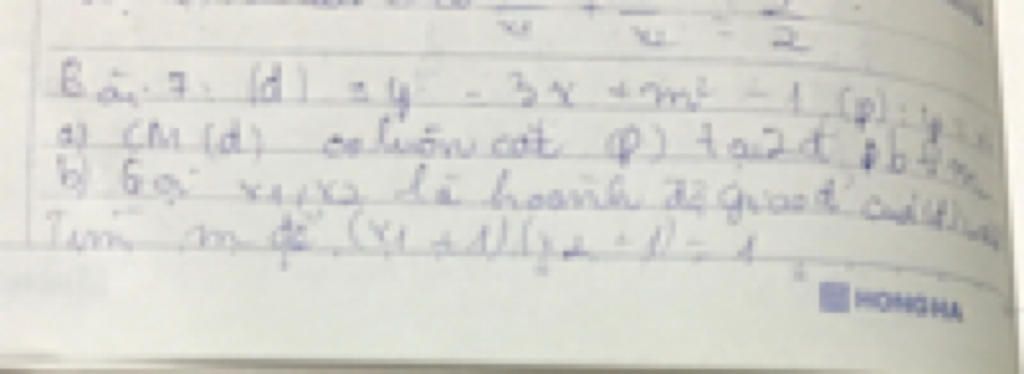 x + x = 2
Bài 7. (d) : y = 3x + m² - 1 (P) : y =
a) CM (d) luôn cắt (P) tại 2 đ pb ∀m
b) Gọi x₁, x₂ là hoành độ giao đ của (d) và
Tìm m để (x₁ + 1)(x₂ + 1) = 1
HONG HA